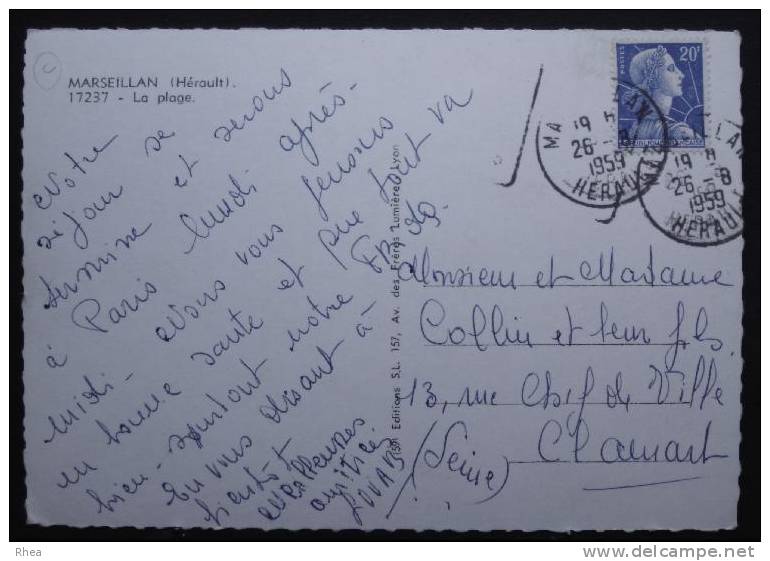 MARSEILLAN (Hérault).
17237 - La plage.
Notre
séjour se
termine et serons
à Paris lundi après-
midi - Nous vous pensons
en bonne santé et que tout va
bien - surtout notre
En vous disant à
bientôt
Meilleures
amitiés
Editions S.L. 157, Av. des Frères Lumière, Lyon
20F
POSTES
19 H
26 -8
1959
HERAULT
19 H
26 -8
1959
HERAULT
Monsieur et Madame
Collin et leur fils
13, rue Chef de Ville
Clamart
(Seine)
Rhea
www.delcampe.net